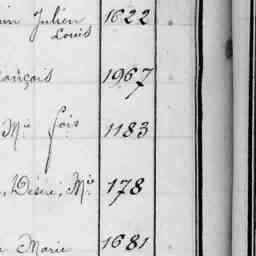 Julien 1622
Louis
1967
Mie fois 1183
Désiré, Mie 178
Marie 1681